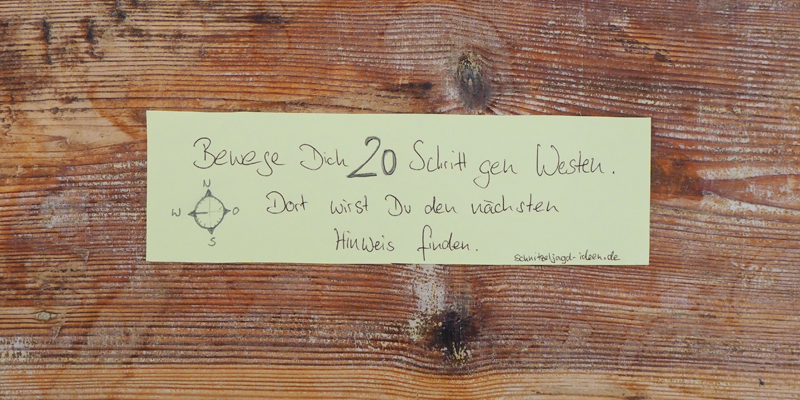 Bewege Dich 20 Schritt gen Westen.
N
W O
S
Dort wirst Du den nächsten
Hinweis finden.
schnitzeljagd-ideen.de